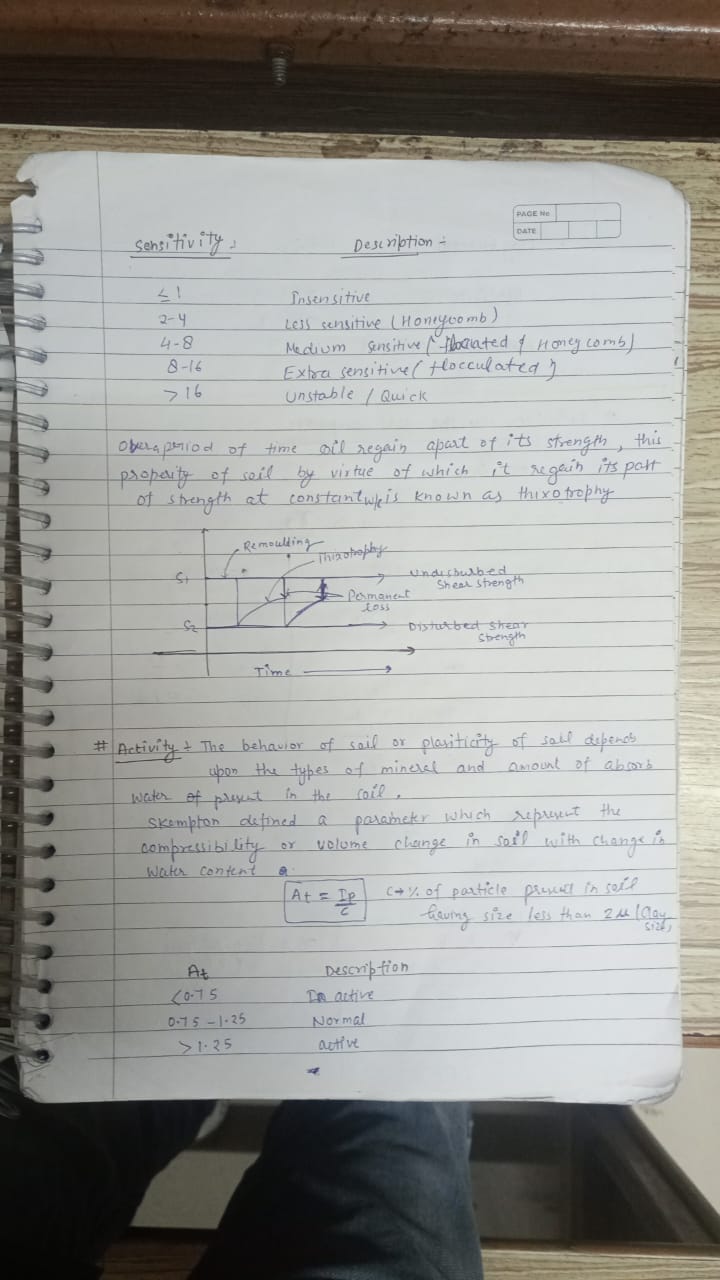 PAGE No
DATE
Sensitivity :
Description :-
≤ 1 Insensitive
2-4 Less sensitive (Honeycomb)
4-8 Medium sensitive ( & Honeycomb)
8-16 Extra sensitive (flocculated)
> 16 Unstable / Quick
Over a period of time soil regain apart of its strength, this
properity of soil by virtue of which it regain its part
of strength at constant is known as thixotrophy
Remoulding
Thixotrophy
S1
Undisburbed
Shear strength
Permanent
loss
S2
Disturbed shear
strength
Time
# Activity :- The behavior of soil or plasiticity of soil depends
upon the types of mineral and amount of absorb
water present in the soil.
Skempton defined a parameter which represent the
compressibility or volume change in soil with change in
water content
At = Ip/C
C → % of particle present in soil
having size less than 2 μ (Clay
size)
At Description
<0.75 In active
0.75 - 1.25 Normal
> 1.25 active